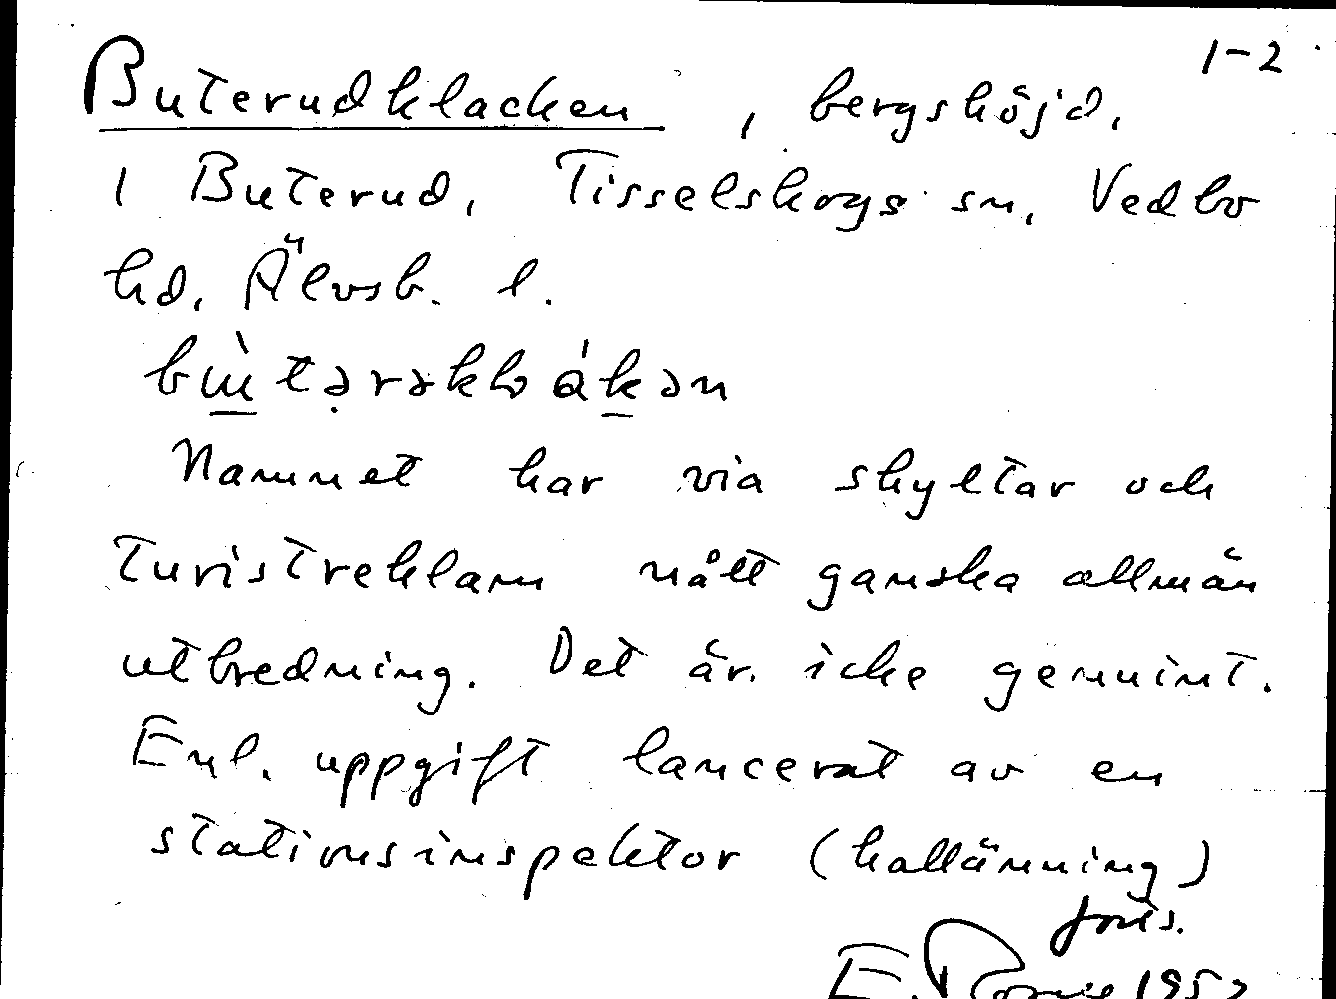 1-2
Buterudklacken, bergshöjd,
i Buterud, Tisselskogs sn, Vedbo
hd, Älvsb. l.
Namnet har via skyltar och
turistreklam nått ganska allmän
utbredning. Det är icke genuint.
Enl. uppgift lancerat av en
stationsinspektor (hallänning)
forts.
E. 195